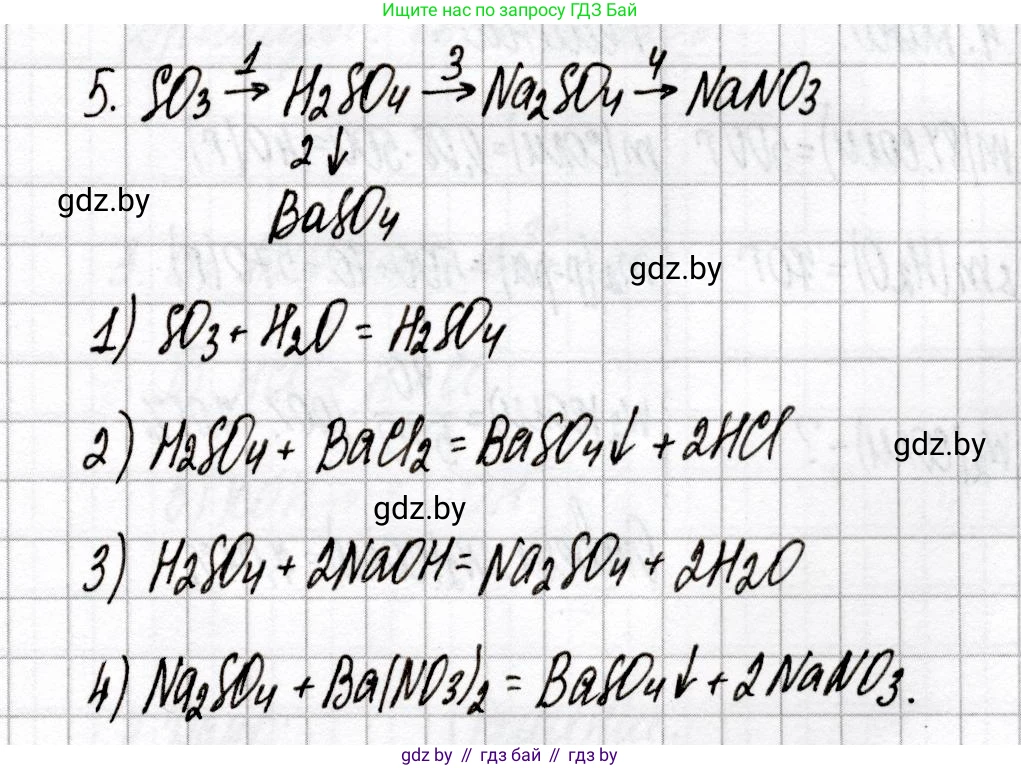 Ищите нас по запросу ГДЗ Бай
5. SO3 →1 H2SO4 →3 Na2SO4 →4 NaNO3
2↓
gdz.by
BaSO4
gdz.by
1) SO3 + H2O = H2SO4
2) H2SO4 + BaCl2 = BaSO4↓ + 2HCl
gdz.by
gdz.by
3) H2SO4 + 2NaOH = Na2SO4 + 2H2O
4) Na2SO4 + Ba(NO3)2 = BaSO4↓ + 2NaNO3.
gdz.by // гдз бай // gdz by